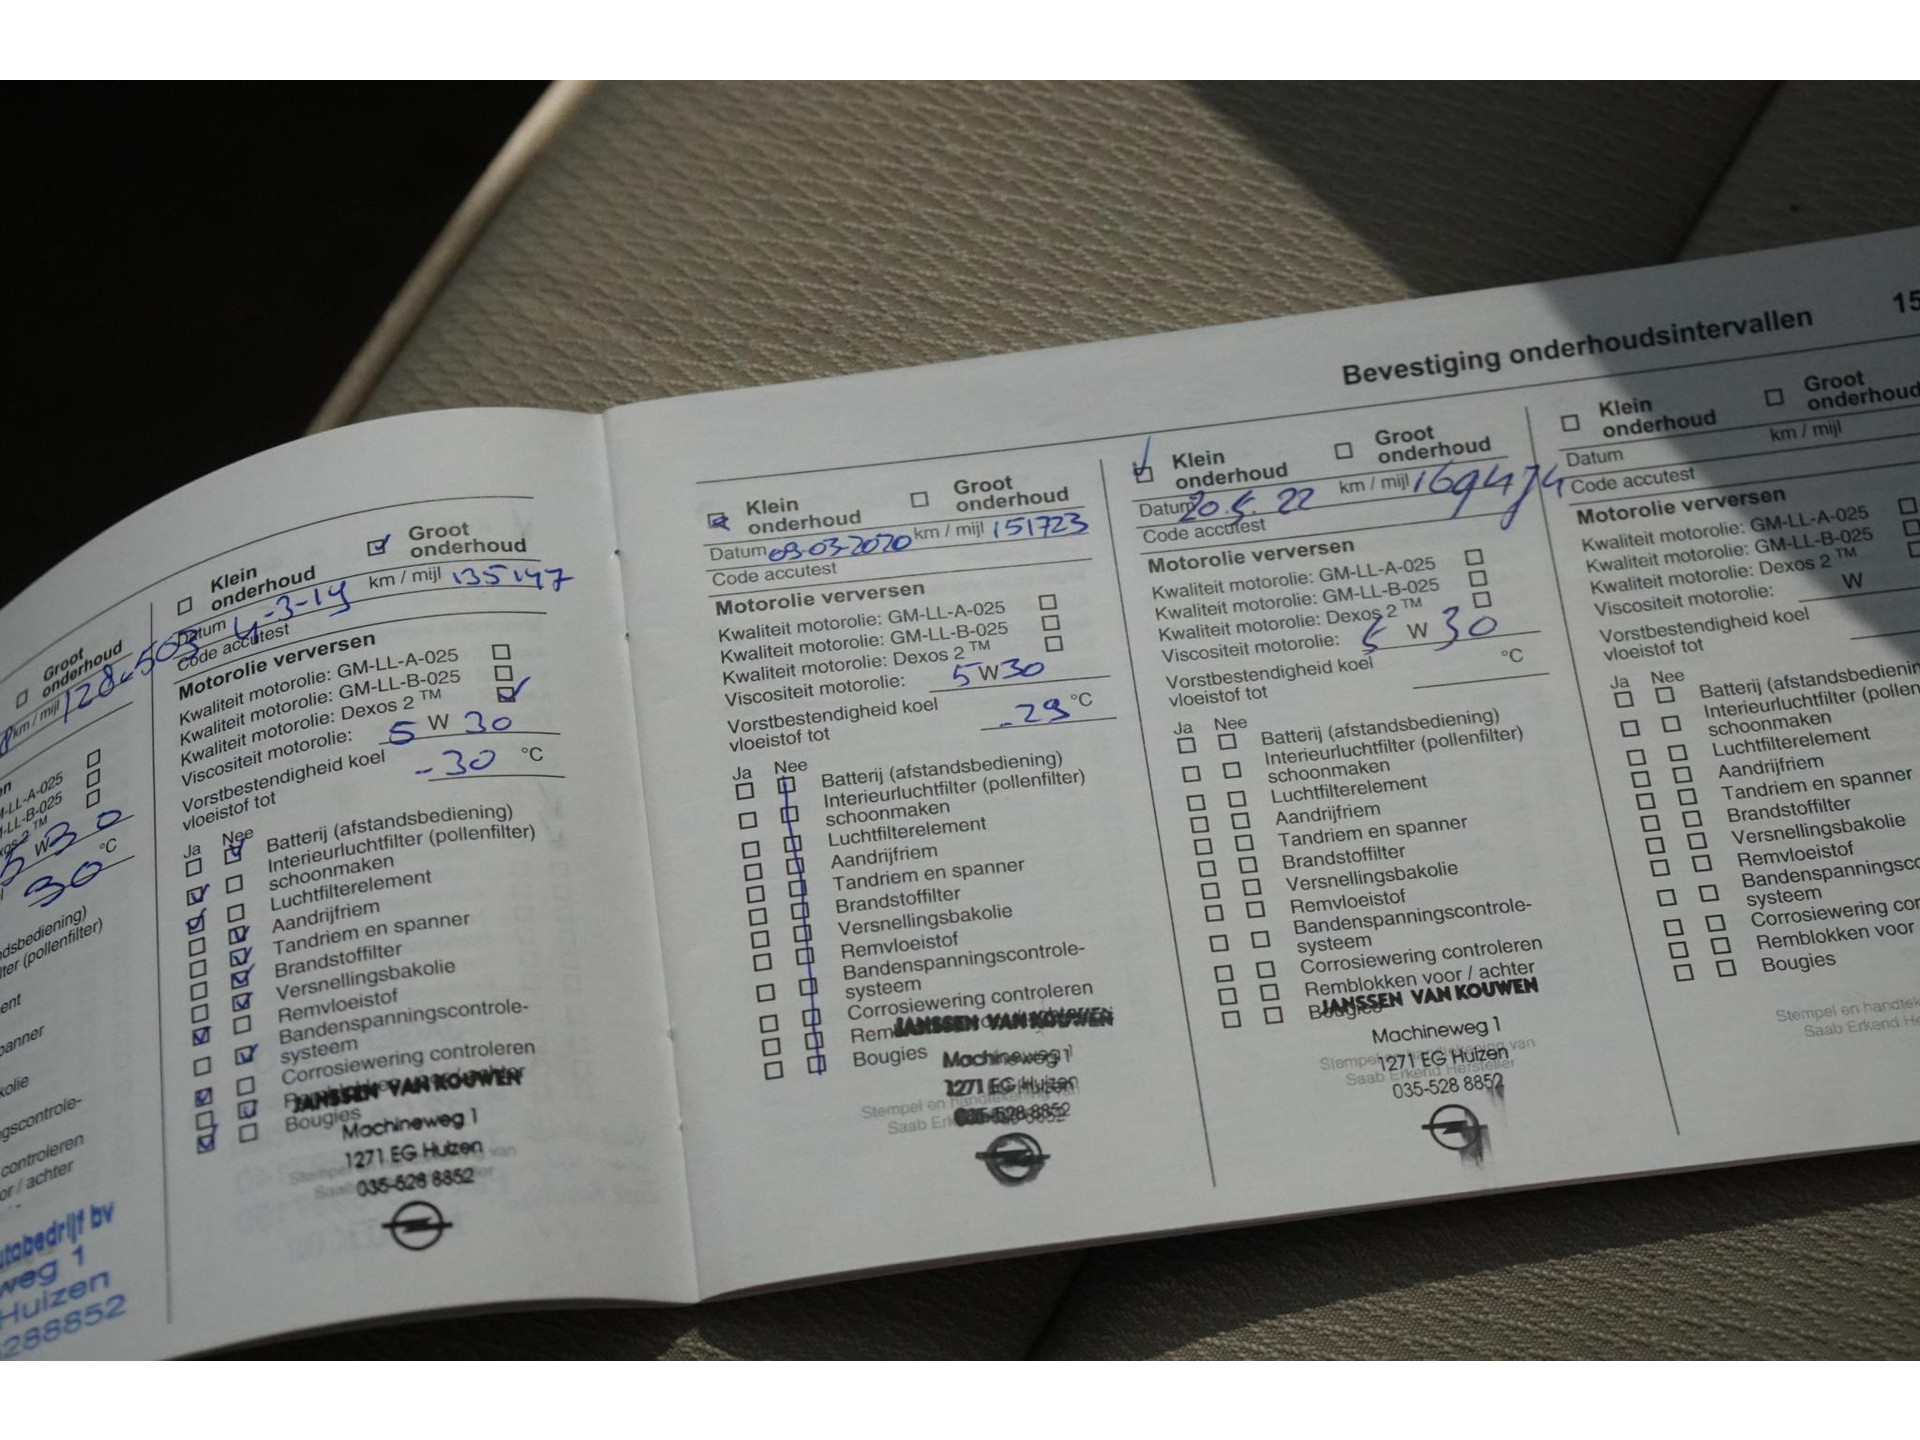 Groot
onderhoud
km / mijl 128.503
M-LL-A-025
LL-B-025
W 30
30 °C
dsbediening)
ter (pollenfilter)
ent
anner
kolie
gscontrole-
controleren
or / achter
utobedrijf bv
weg 1
Huizen
288852
Klein onderhoud
Groot onderhoud
Datum 4-3-19 km / mijl 135147
Code accutest
Motorolie verversen
Kwaliteit motorolie: GM-LL-A-025
Kwaliteit motorolie: GM-LL-B-025
Kwaliteit motorolie: Dexos 2 ™
Viscositeit motorolie: 5 W 30
Vorstbestendigheid koel
vloeistof tot -30 °C
Ja Nee
Batterij (afstandsbediening)
Interieurluchtfilter (pollenfilter)
schoonmaken
Luchtfilterelement
Aandrijfriem
Tandriem en spanner
Brandstoffilter
Versnellingsbakolie
Remvloeistof
Bandenspanningscontrole-
systeem
Corrosiewering controleren
JANSSEN VAN KOUWEN
Bougies
Machineweg 1
1271 EG Huizen
035-528 8852
Bevestiging onderhoudsintervallen 15
Klein onderhoud
Groot onderhoud
Datum 09-03-2020 km / mijl 151723
Code accutest
Motorolie verversen
Kwaliteit motorolie: GM-LL-A-025
Kwaliteit motorolie: GM-LL-B-025
Kwaliteit motorolie: Dexos 2 ™
Viscositeit motorolie: 5 W 30
Vorstbestendigheid koel
vloeistof tot -29 °C
Ja Nee
Batterij (afstandsbediening)
Interieurluchtfilter (pollenfilter)
schoonmaken
Luchtfilterelement
Aandrijfriem
Tandriem en spanner
Brandstoffilter
Versnellingsbakolie
Remvloeistof
Bandenspanningscontrole-
systeem
Corrosiewering controleren
JANSSEN VAN KOUWEN
Bougies
Machineweg 1
1271 EG Huizen
Stempel en handtekening van
035-528 8852
Klein onderhoud
Groot onderhoud
Datum 20.5.22 km / mijl 169474
Code accutest
Motorolie verversen
Kwaliteit motorolie: GM-LL-A-025
Kwaliteit motorolie: GM-LL-B-025
Kwaliteit motorolie: Dexos 2 ™
Viscositeit motorolie: 5 W 30
Vorstbestendigheid koel
vloeistof tot °C
Ja Nee
Batterij (afstandsbediening)
Interieurluchtfilter (pollenfilter)
schoonmaken
Luchtfilterelement
Aandrijfriem
Tandriem en spanner
Brandstoffilter
Versnellingsbakolie
Remvloeistof
Bandenspanningscontrole-
systeem
Corrosiewering controleren
Remblokken voor / achter
Bougies
JANSSEN VAN KOUWEN
Machineweg 1
Stempel en handtekening van
1271 EG Huizen
Saab Erkend Hersteller
035-528 8852
Klein onderhoud
Groot onderhoud
Datum km / mijl
Code accutest
Motorolie verversen
Kwaliteit motorolie: GM-LL-A-025
Kwaliteit motorolie: GM-LL-B-025
Kwaliteit motorolie: Dexos 2 ™
Viscositeit motorolie: W
Vorstbestendigheid koel
vloeistof tot
Ja Nee
Batterij (afstandsbedienin
Interieurluchtfilter (pollen
schoonmaken
Luchtfilterelement
Aandrijfriem
Tandriem en spanner
Brandstoffilter
Versnellingsbakolie
Remvloeistof
Bandenspanningsco
systeem
Corrosiewering con
Remblokken voor
Bougies
Stempel en handtek
Saab Erkend He